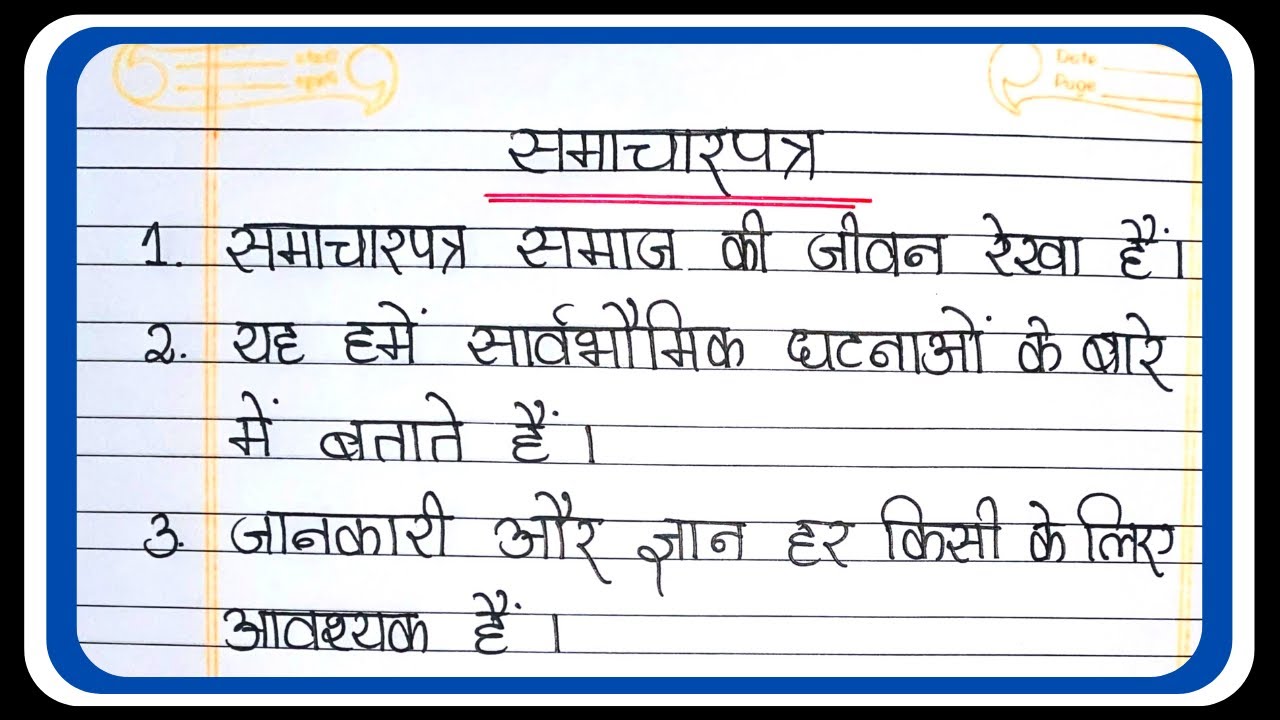 Date
Page
समाचारपत्र
1. समाचारपत्र समाज की जीवन रेखा हैं।
2. यह हमें सार्वभौमिक घटनाओं के बारे
में बताते हैं।
3. जानकारी और ज्ञान हर किसी के लिए
आवश्यक हैं।